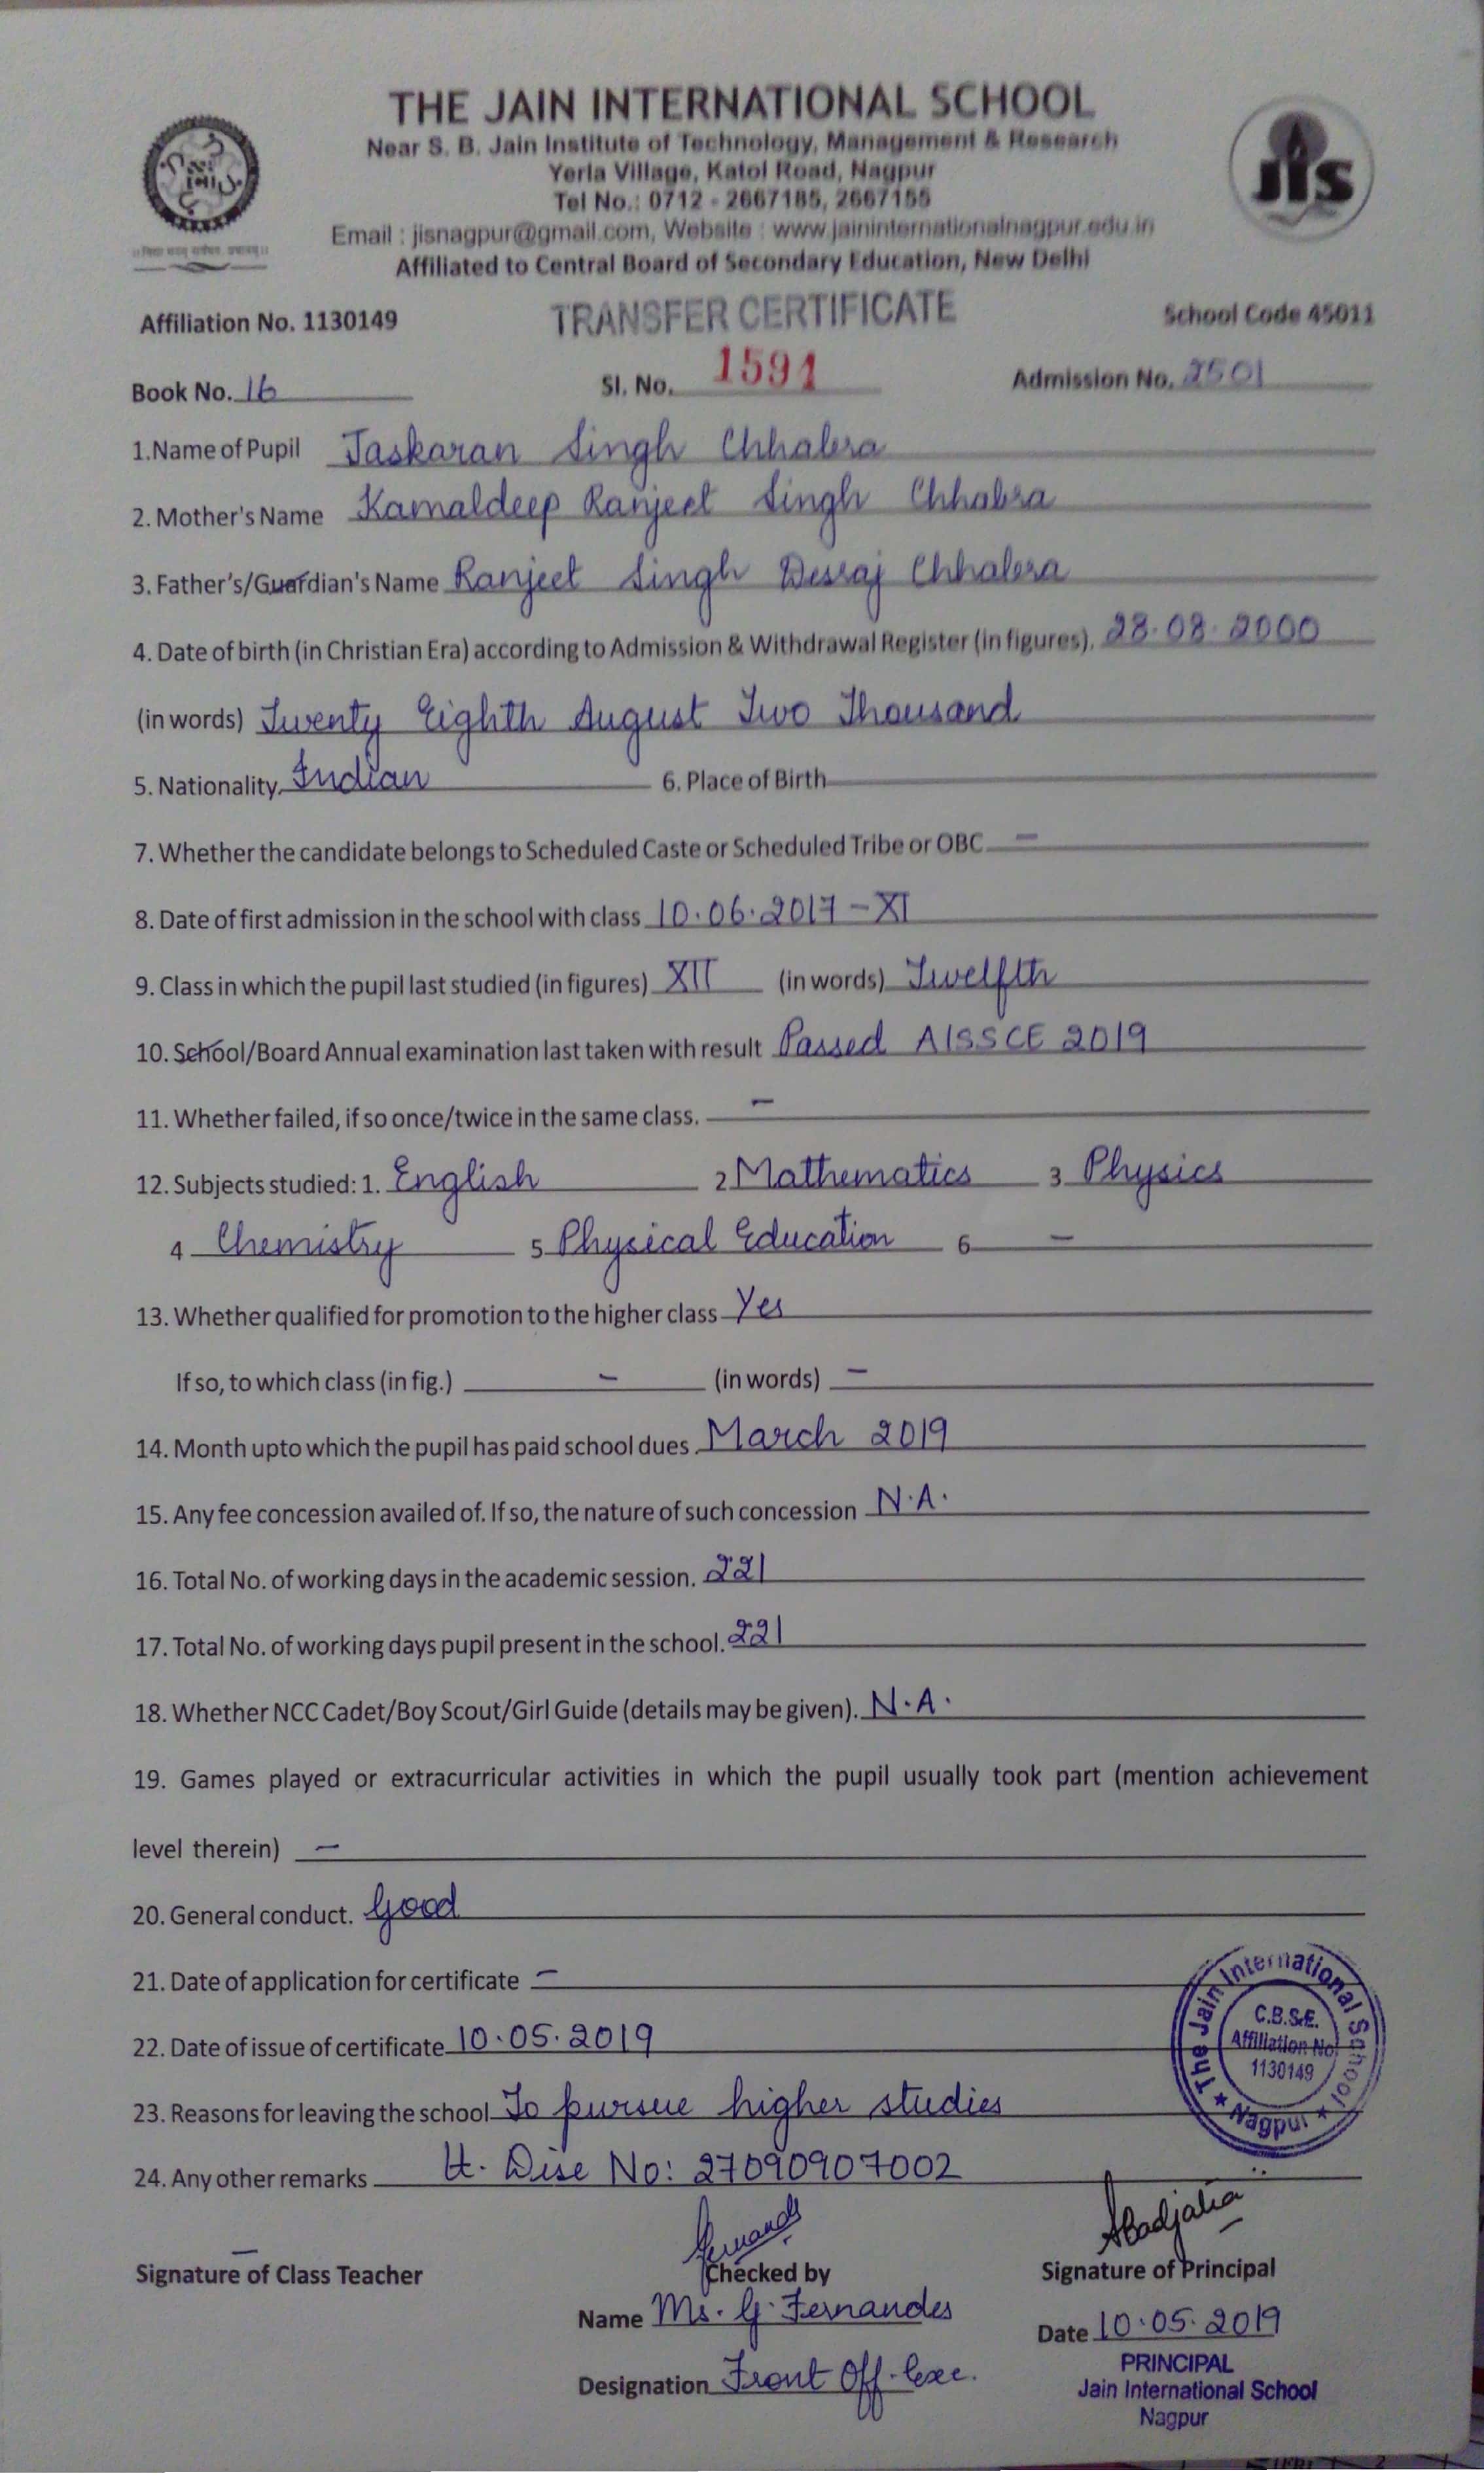 THE JAIN INTERNATIONAL SCHOOL
Near S. B. Jain Institute of Technology, Management & Research
Yerla Village, Katol Road, Nagpur
Tel No.: 0712 - 2667185, 2667155
Email : jisnagpur@gmail.com, Website : www.jaininternationalnagpur.edu.in
Affiliated to Central Board of Secondary Education, New Delhi
jis
Affiliation No. 1130149 TRANSFER CERTIFICATE School Code 45011
Book No. 16 Sl. No. 1591 Admission No. 2501
1.Name of Pupil Jaskaran Singh Chhabra
2. Mother's Name Kamaldeep Ranjeet Singh Chhabra
3. Father's/Guardian's Name Ranjeet Singh Desraj Chhabra
4. Date of birth (in Christian Era) according to Admission & Withdrawal Register (in figures). 28.08.2000
(in words) Twenty Eighth August Two Thousand
5. Nationality. Indian 6. Place of Birth
7. Whether the candidate belongs to Scheduled Caste or Scheduled Tribe or OBC –
8. Date of first admission in the school with class 10.06.2017 – XI
9. Class in which the pupil last studied (in figures) XII (in words) Twelfth
10. School/Board Annual examination last taken with result Passed AISSCE 2019
11. Whether failed, if so once/twice in the same class. –
12. Subjects studied: 1. English 2 Mathematics 3 Physics
4 Chemistry 5 Physical Education 6 –
13. Whether qualified for promotion to the higher class Yes
If so, to which class (in fig.) – (in words) –
14. Month upto which the pupil has paid school dues March 2019
15. Any fee concession availed of. If so, the nature of such concession N.A.
16. Total No. of working days in the academic session. 221
17. Total No. of working days pupil present in the school. 221
18. Whether NCC Cadet/Boy Scout/Girl Guide (details may be given). N.A.
19. Games played or extracurricular activities in which the pupil usually took part (mention achievement
level therein) –
20. General conduct. Good
21. Date of application for certificate –
22. Date of issue of certificate 10.05.2019
23. Reasons for leaving the school To pursue higher studies
24. Any other remarks U. Dise No: 27090907002
The Jain International School
C.B.S.E.
Affiliation No.
1130149
★ Nagpur ★
Signature of Class Teacher – Checked by Signature of Principal
Name Ms. G. Fernandes Date 10.05.2019
Designation Front Off. Exe.
PRINCIPAL
Jain International School
Nagpur